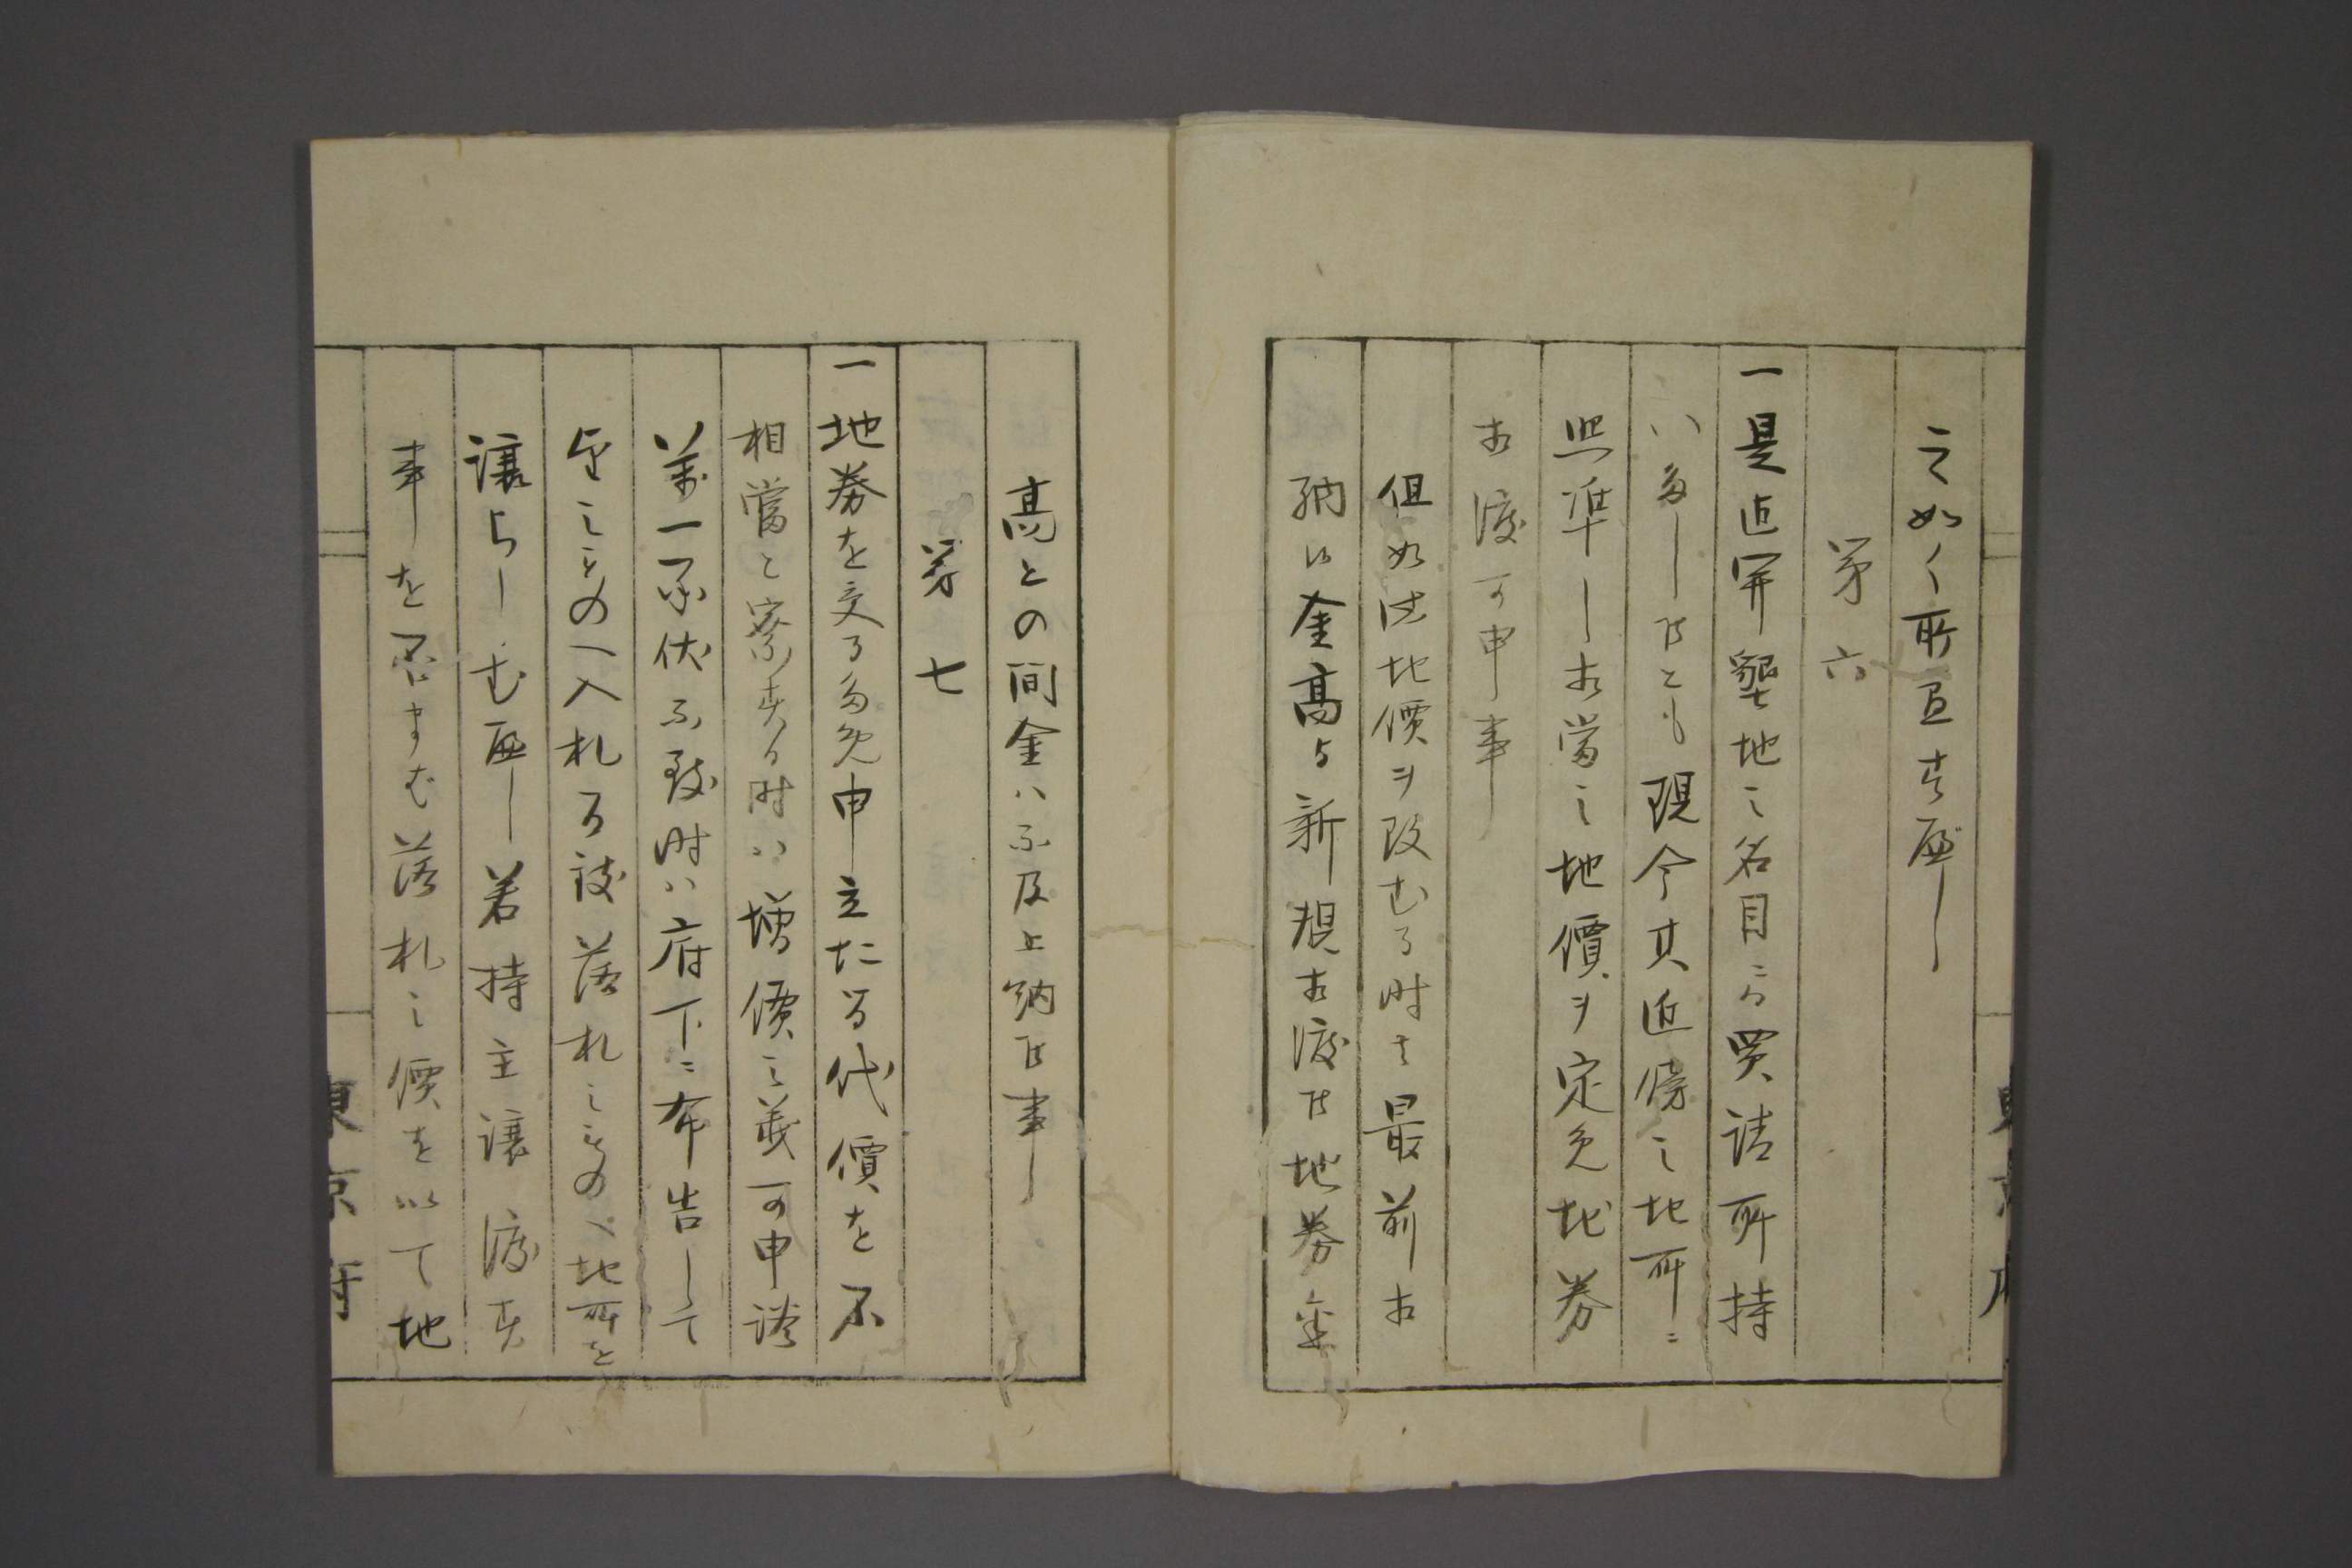 之如く所置すへし
第六
一是迄開墾地之名目ニ而買請所持
ハ多し候とも現今其近傍之地所ニ
照準し相當之地價ヲ定免地券
相渡可申事
但如此地價ヲ改むる時は最前相
納候金高与新規相渡候地券金
高との間金ハ不及上納候事
第七
一地券を受る為免申立たる代價を不
相當と察する時ハ増價之義可申談
萬一不伏ニ候時ハ府下ニ布告して
望之ものへ入札為致落札之もの地所を
譲らしむへし若持主譲渡す
事を否まむ落札之價を以て地
東京府
東京府